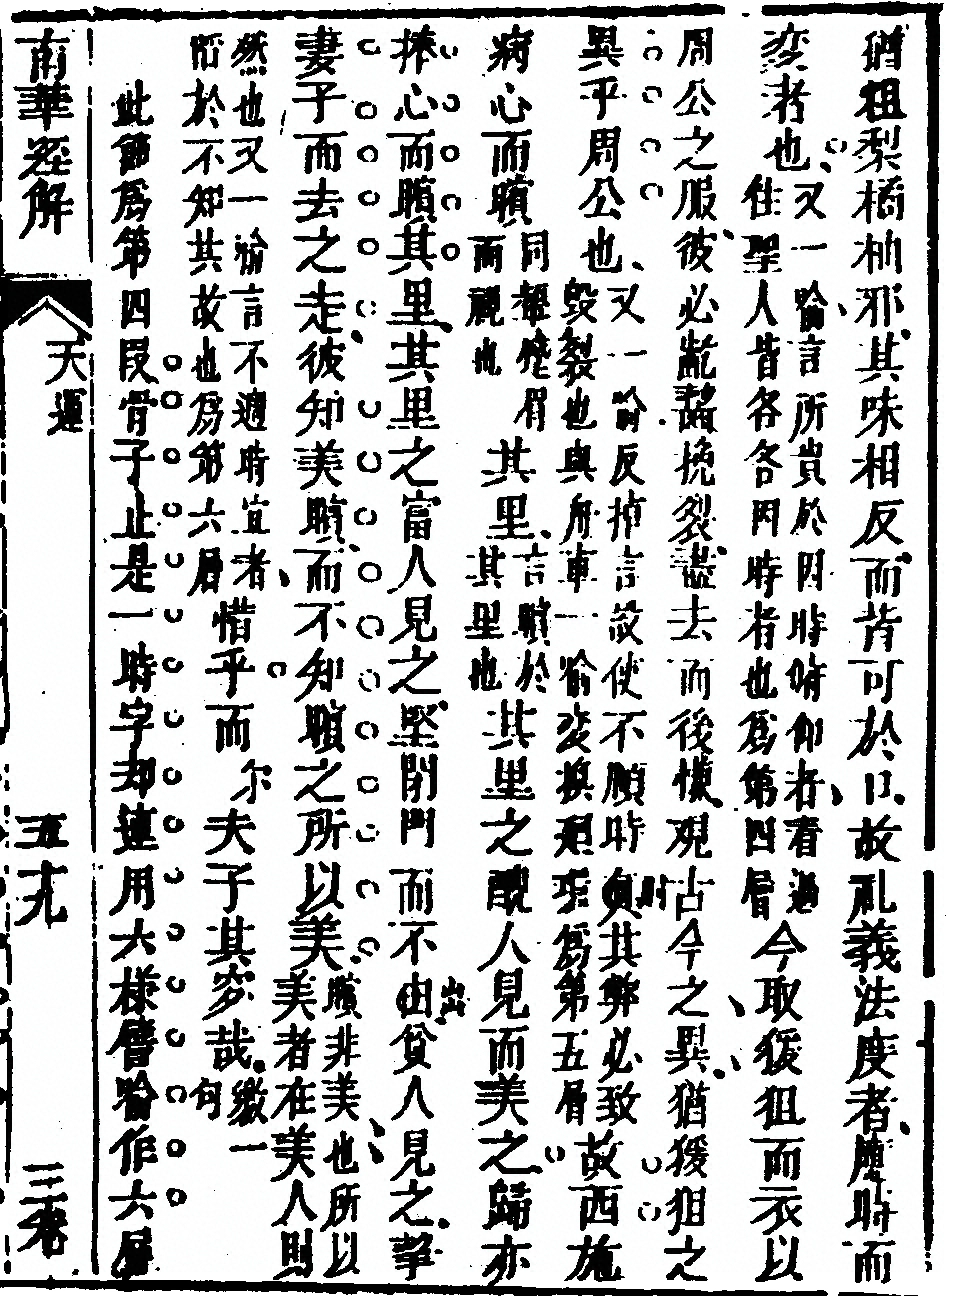 猶柤梨橘柚邪其味相反而皆可於口故礼義法度者應時而
変者也又一喻言所貴於因時俯仰者看過
往聖人昔各各因時者也為第四層今取猨狙而衣以
周公之服彼必齕齧挽裂盡去而後慊觀古今之異猶猨狙之
異乎周公也又一喻反掉言設使不順時則其弊必致
毀裂也與舟車一喻变換迴環為第五層故西施
病心而矉同顰蹙眉
而視也其里言矉於
其里也其里之醜人見而美之歸亦
捧心而矉其里其里之富人見之堅閉門而不由出貧人見之挈
妻子而去之走彼知美矉而不知矉之所以美矉非美也所以
美者在美人則
然也又一喻言不適時宜者
於不知其故也為第六層惜乎而尔夫子其窮哉繳一
句
此節為第四段骨子止是一時字却連用六樣譬喻作六層
南華經解 天運 五十九 三卷